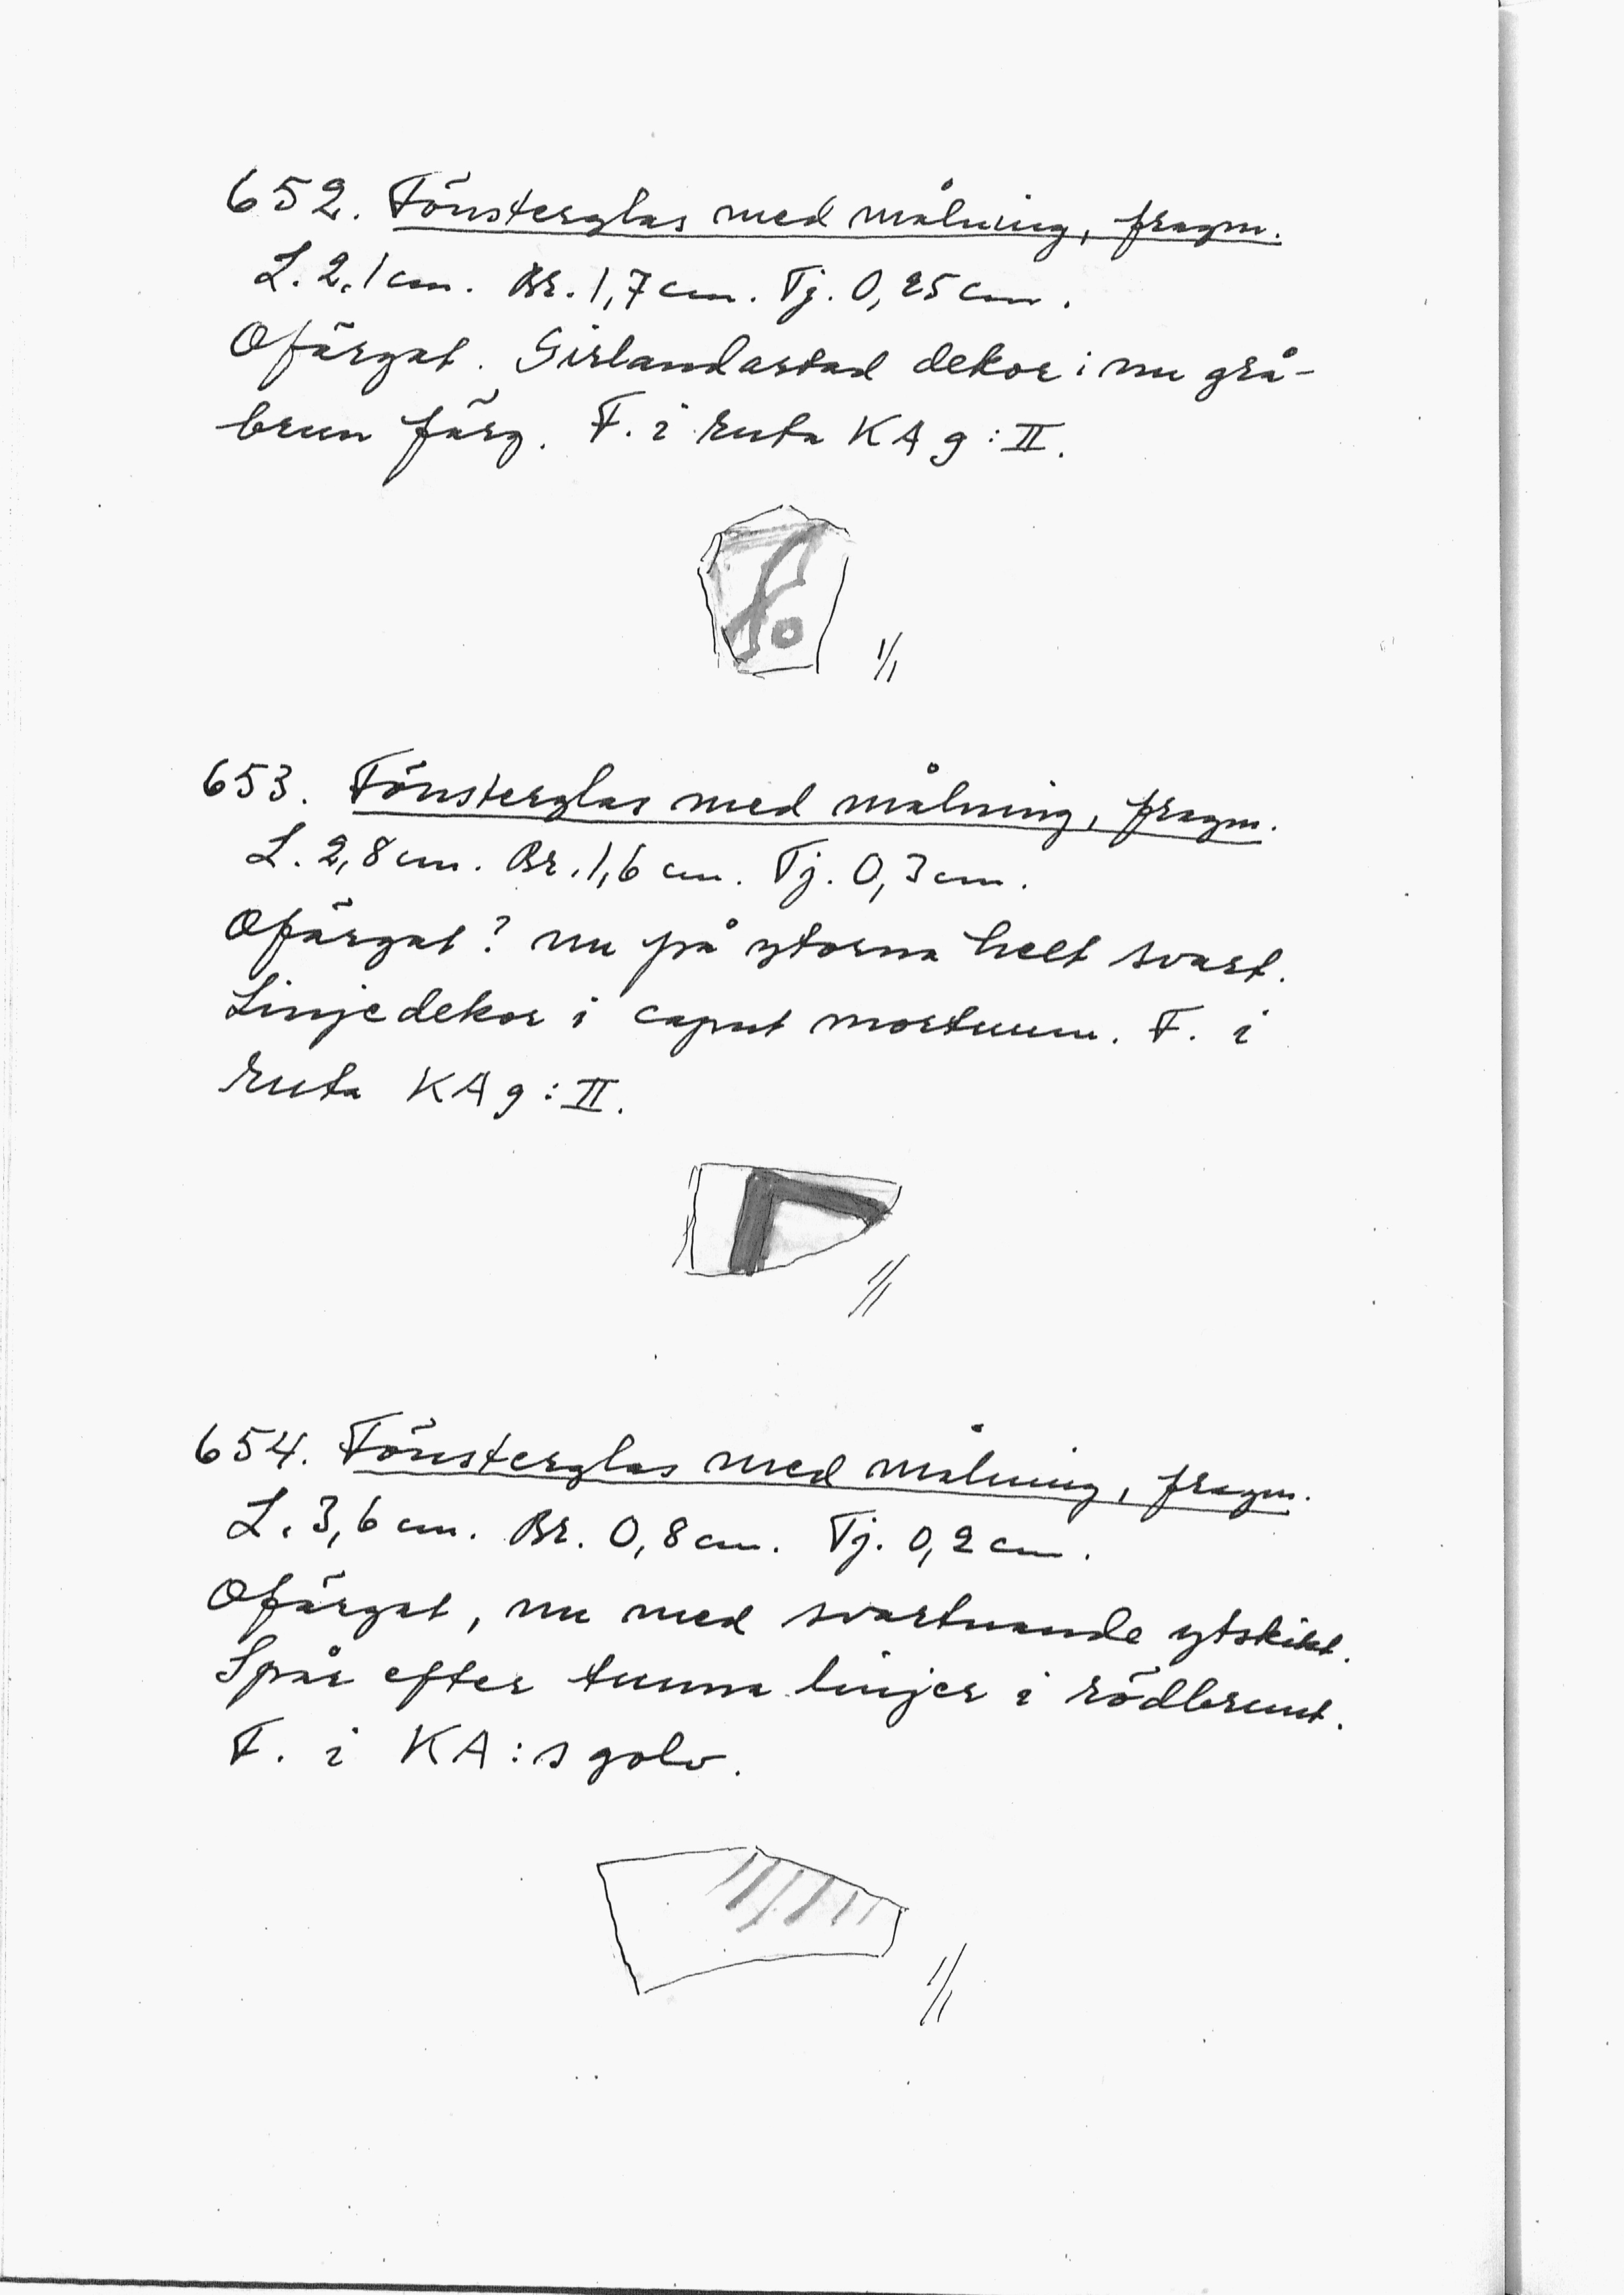 652. Fönsterglas med målning, fragm.
L. 2,1 cm. Br. 1,7 cm. Tj. 0,25 cm.
Ofärgat. Girlandartad dekor i nu grå-
brun färg. F. i ruta KA 9:II.
1/1
653. Fönsterglas med målning, fragm.
L. 2,8 cm. Br. 1,6 cm. Tj. 0,3 cm.
Ofärgat? nu på ytorna helt svart.
Linjedekor i caput mortuum. F. i
ruta KA 9:II.
1/1
654. Fönsterglas med målning, fragm.
L. 3,6 cm. Br. 0,8 cm. Tj. 0,2 cm.
Ofärgat, nu med svartnande ytskikt.
Spår efter tunna linjer i rödbrunt.
F. i KA:s golv.
1/1